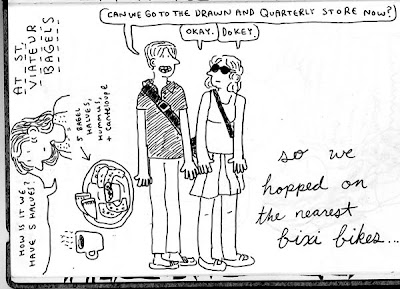 CAN WE GO TO THE DRAWN AND QUARTERLY STORE NOW?
OKAY. DOKEY.
AT ST.
VIATEUR
BAGELS
5 BAGEL
HALVES,
HUMMUS,
+ CANTELOUPE
HOW IS IT WE
HAVE 5 HALVES?
so we
hopped on
the nearest
bixi bikes...